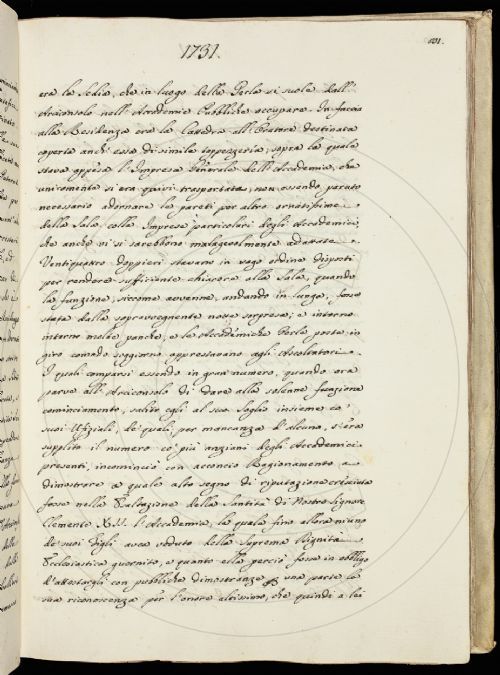 1731.
era la Sedia, che in luogo della Gerla si suole dall'
Arciconsolo nell'Accademie Pubbliche occupare. In faccia
alla Residenza era la Catedra all'Oratore destinata
coperta anch'essa di simile tappezzeria, sopra la quale
stava appesa l'Impresa Generale dell'Accademia, che
unicamente si era quivi trasportata, non essendo paruto
necessario adornare la pareti per altro ornatissime
della Sala colle Imprese particolari degli Accademici,
che anche vi si sarebbono malagevolmente adattate.
Ventiquattro doppieri stavano in vago ordine disposti
per rendere sufficiente chiarore alla Sala, quando
la funzione, siccome avvenne, andando in lungo, fosse
stata dalla sopravvegnente notte sorpresa; e intorno
intorno molte panche, e le Accademiche Gerle poste in
giro comodo soggiorno apprestavano agli Ascoltatori.
I quali comparsi essendo in gran numero, quando ora
parve all'Arciconsolo di dare alla solenne funzione
cominciamento, salito egli al suo Soglio insieme co'
suoi Ufiziali, de' quali, per mancanza d'alcuno, s'era
supplito il numero co' più anziani degli Accademici
presenti, incominciò con acconcio Ragionamento a
dimostrare a quale alto segno di riputazione cresciuta
fosse nella Esaltazione della Santità di Nostro Signore
Clemente XII. l'Accademia, la quale fino allora niuno
de' suoi Figli avea veduto della Suprema Dignità
Ecclesiastica guernito, e quanto ella perciò fosse in obbligo
d'attestargli con pubbliche dimostranze una parte la
sua riconoscenza per l'onore altissimo, che quindi a lei